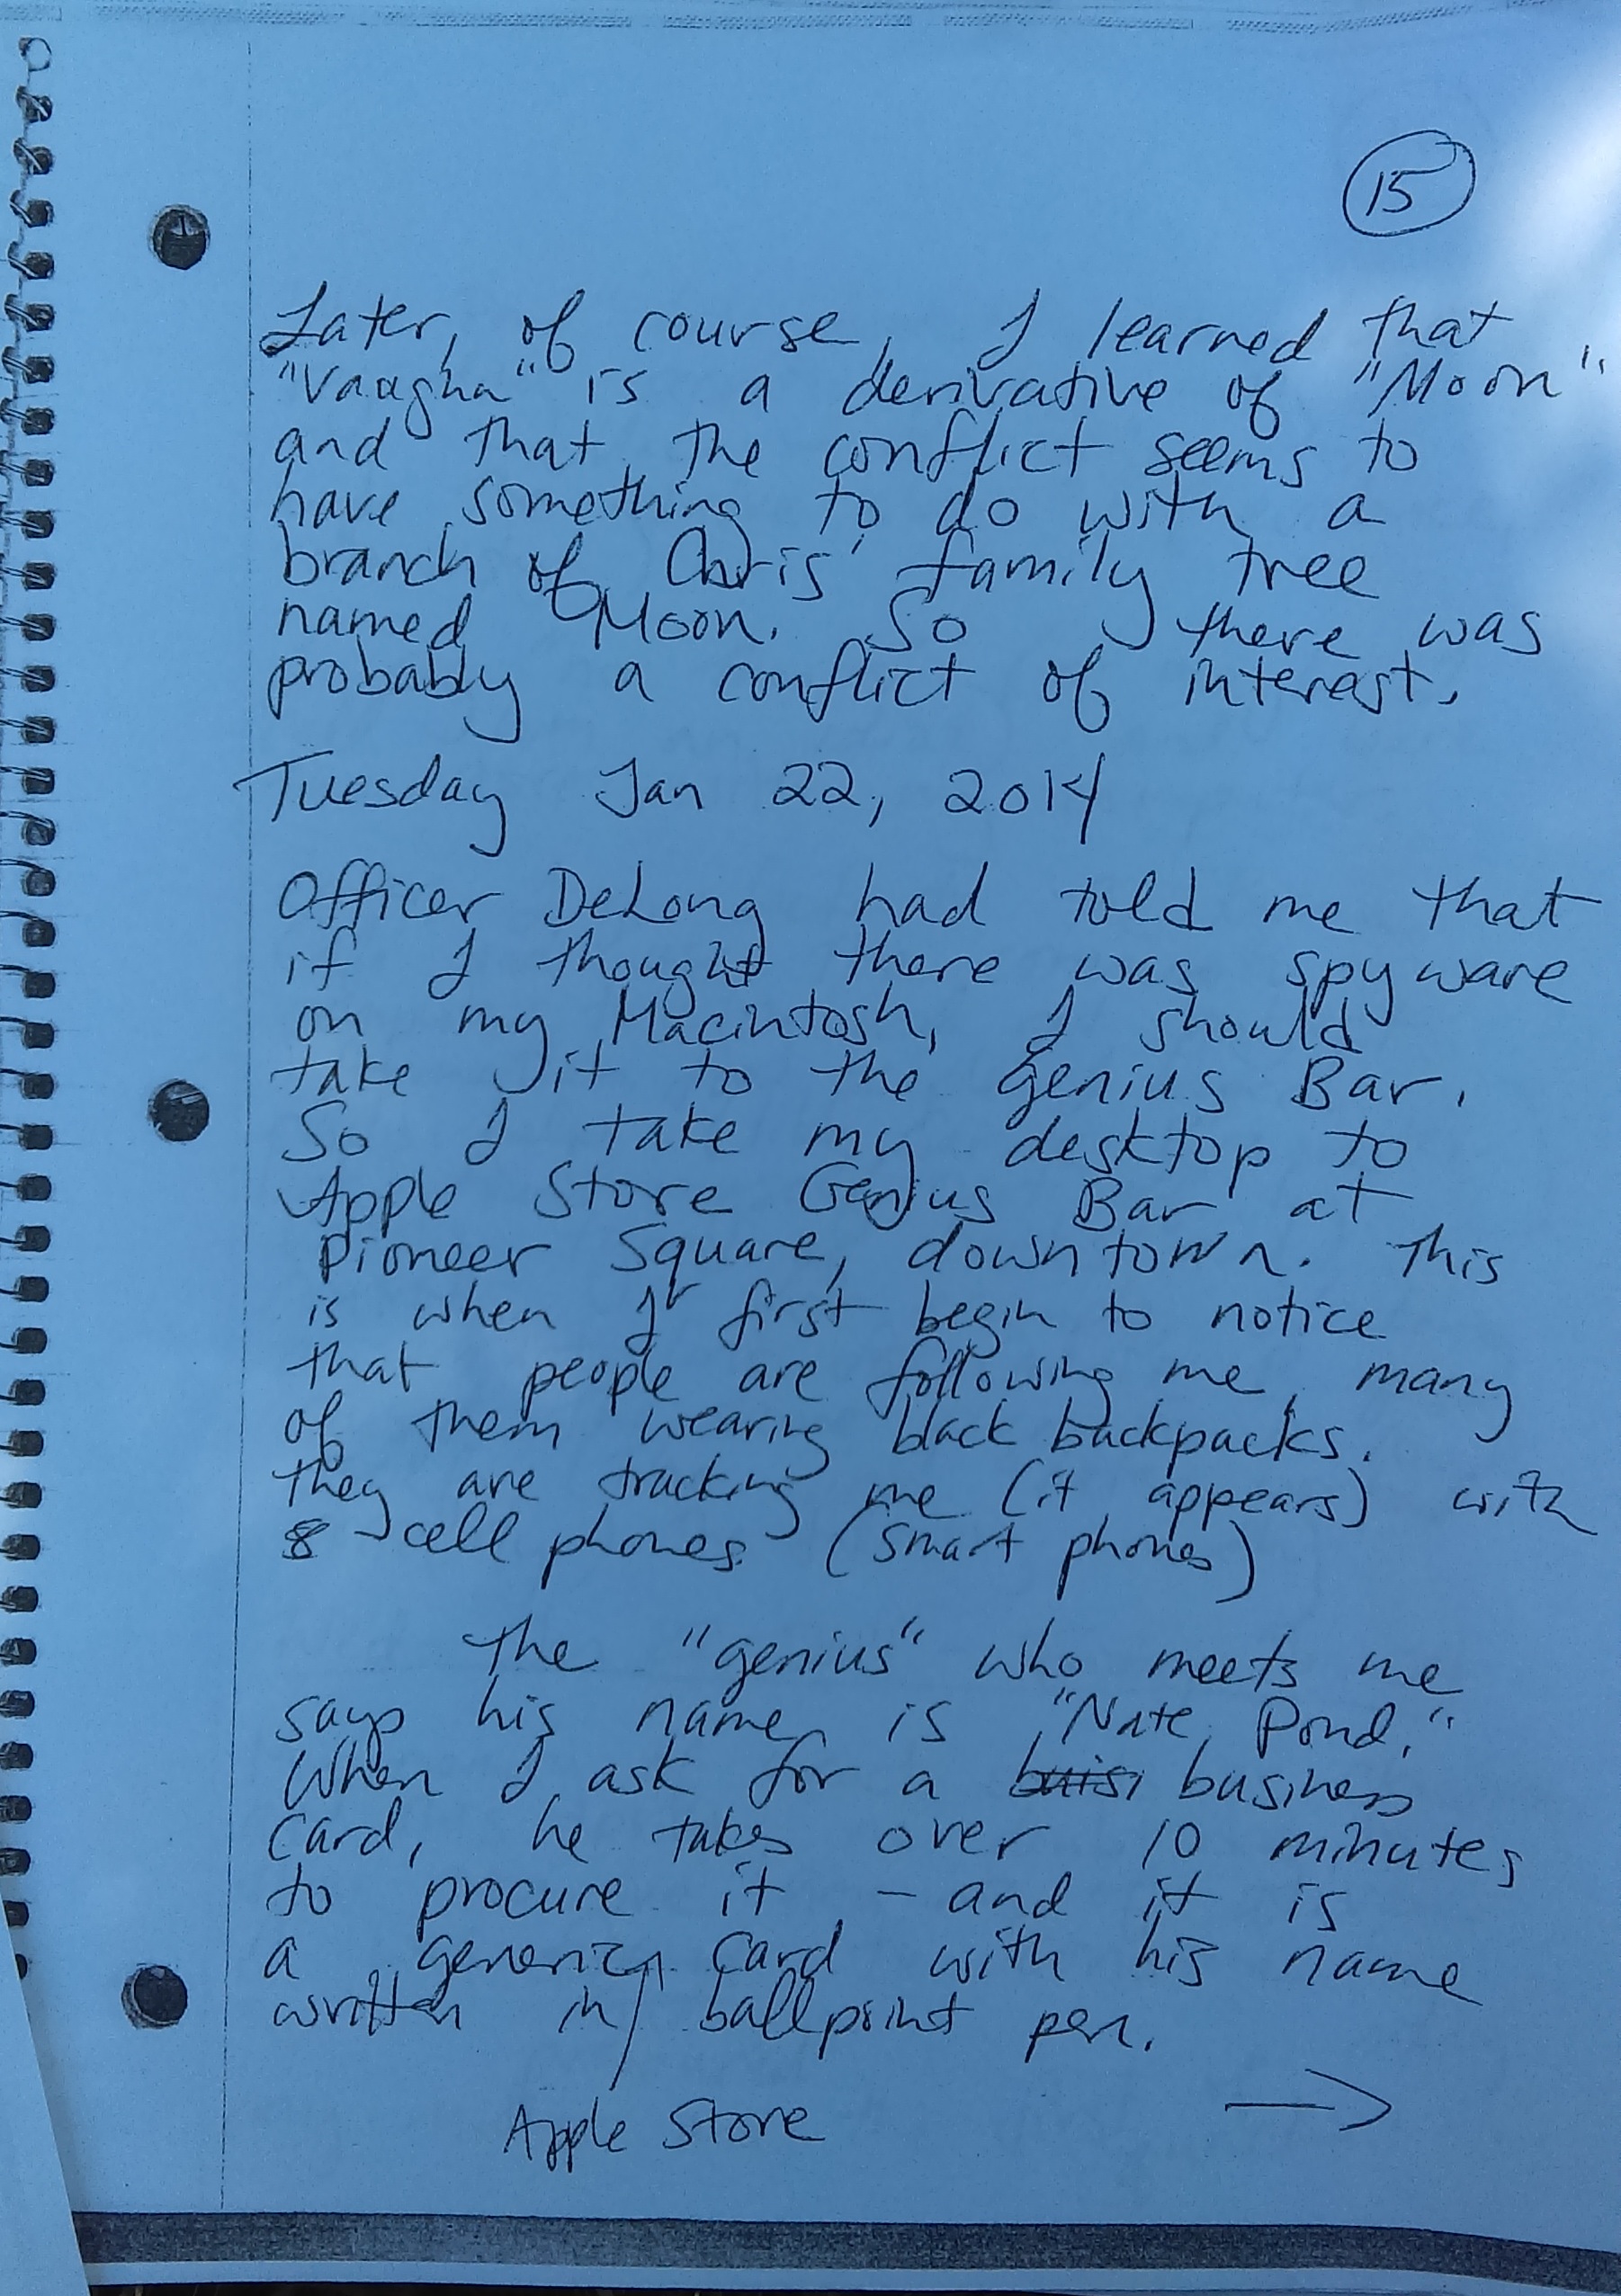 15
Later, of course, I learned that
"Vaughn" is a derivative of "Moon"
and that the conflict seems to
have something to do with a
branch of Chris' family tree
named Moon. So there was
probably a conflict of interest.
Tuesday Jan 22, 2014
Officer DeLong had told me that
if I thought there was spyware
on my Macintosh, I should
take it to the Genius Bar.
So I take my desktop to
Apple Store Genius Bar at
Pioneer Square, downtown. This
is when I first begin to notice
that people are following me, many
of them wearing black backpacks.
They are tracking me (it appears) with
cell phones (smart phones)
The "genius" who meets me
says his name is "Nate Pond."
When I ask for a buisi business
card, he takes over 10 minutes
to procure it - and it is
a generic card with his name
written in ballpoint pen.
Apple Store →